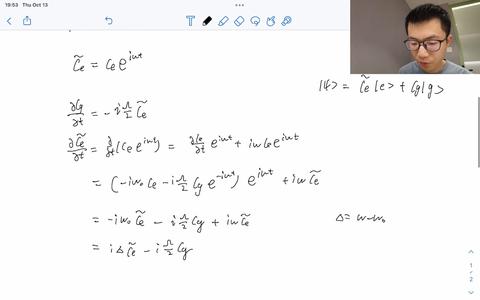 19:53 Thu Oct 13
T
C̃e = Ce e^{iωt}
|ψ> = C̃e |e> + Cg |g>
∂Cg/∂t = -i Ω/2 C̃e
∂C̃e/∂t = ∂/∂t (Ce e^{iωt}) = ∂Ce/∂t e^{iωt} + iω Ce e^{iωt}
= (-iω₀ Ce - i Ω/2 Cg e^{-iωt}) e^{iωt} + iω C̃e
= -iω₀ C̃e - i Ω/2 Cg + iω C̃e
Δ = ω - ω₀
= iΔ C̃e - i Ω/2 Cg
1
2